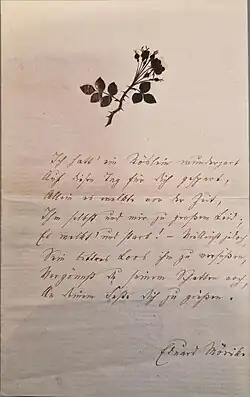 Ich hatt' ein Röslein wunderzart
Auf diesen Tag für dich gespart,
Allein es welkte vor der Zeit,
Ihm selbst und mir zu großem Leid.
Es welkt' und starb! – Vielleicht jedoch,
Sein bittres Loos ihm zu versüßen,
Vergönnst du seinem Schatten noch,
An deinem Feste dich zu grüßen.
Eduard Mörike